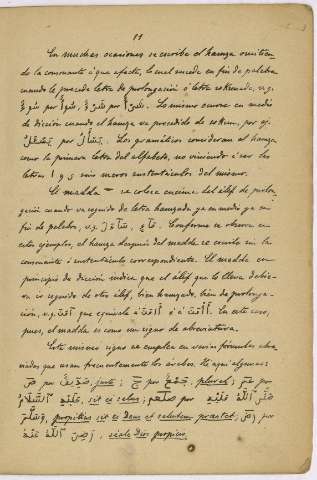 11
En muchas ocasiones se escribe el hamza omitien-
do la consonante á que afecta, lo cual sucede en fin de palabra
cuando le precede letra de prolongación ó letra sokunada, v.g.
شَيْءٌ por
Lo mismo ocurre en medio
de dicción cuando el hamza va precedido de sokun, por ej.
por يَسْأَلُ. Los gramáticos consideran el hamza
como la primera letra del alfabeto, no viniendo á ser las
letras ا و ى sino meros sustentáculos del mismo.
El madda ~ se coloca encima del alif de prolon-
gación cuando va seguido de letra hamzada ya en medio ya en
fin de palabra, v.g. Conforme se observa en
estos ejemplos, el hamza después del madda se escribe sin la
consonante ó sustentáculo correspondiente. El madda en
principio de dicción indica que el alif que lo lleva debie-
ra ir seguido de otro alif, bien hamzado, bien de prolonga-
ción, v.g. que equivale á ó á En este caso,
pues, el madda es como un signo de abreviatura.
Este mismo signo se emplea en varias fórmulas abre-
viadas que usan frecuentemente los árabes. He aquí algunas:
por por جَمْعٌ, plural; por
عَلَيْهِ السَّلَامُ, sit ei salus; صلعم por صَلَّى اللّٰهُ عَلَيْهِ
وَسَلَّمَ, propitius sit ei Deus et salutem praestet; por
رَضِىَ اللّٰهُ عَنْهُ, séale Dios propicio.